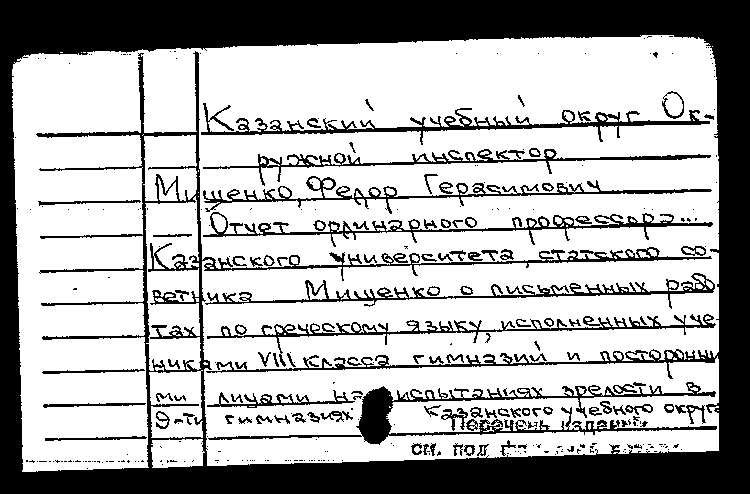 Казанский учебный округ Ок-
ружной инспектор
Мищенко, Федор Герасимович
Отчет ординарного профессора...
Казанского университета, статского со-
ветника Мищенко о письменных рабо-
тах по греческому языку, исполненных уче-
никами VIII класса гимназий и посторонни-
ми лицами на испытаниях зрелости в
9-ти гимназиях Казанского учебного округа
Перечень изданий
см. под